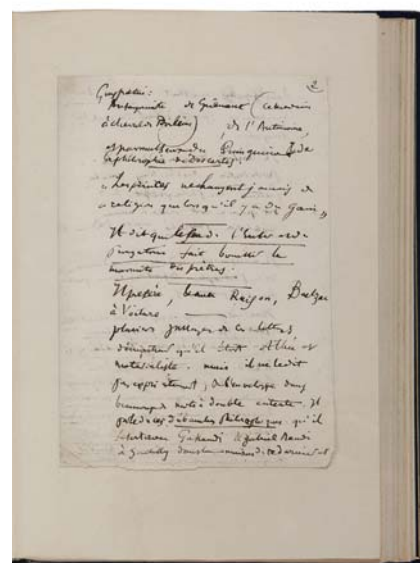 2
Guypatin:
Antagoniste de Guénaut (ce médecin
à cheval de Boileau), de l'Antimoine,
et par
la philosophie de Descartes.
"Les princes ne changent jamais de
religion que lorsqu'il y a du gain"
Il dit que le feu de l'enfer et du
purgatoire fait bouillir la
marmite des prêtres.
Il préfère, beaucoup Balzac
à Voiture
plusieurs passages de ces lettres
qu'il était Athée et
matérialiste. mais il ne le dit
pas expressément, dans
beaucoup mots à double entente. Il
parle de ces débauches philosophiques qu'il
faisait avec Gassendi et Gabriel Naudé
à Gentilly dans la maison de ce dernier et